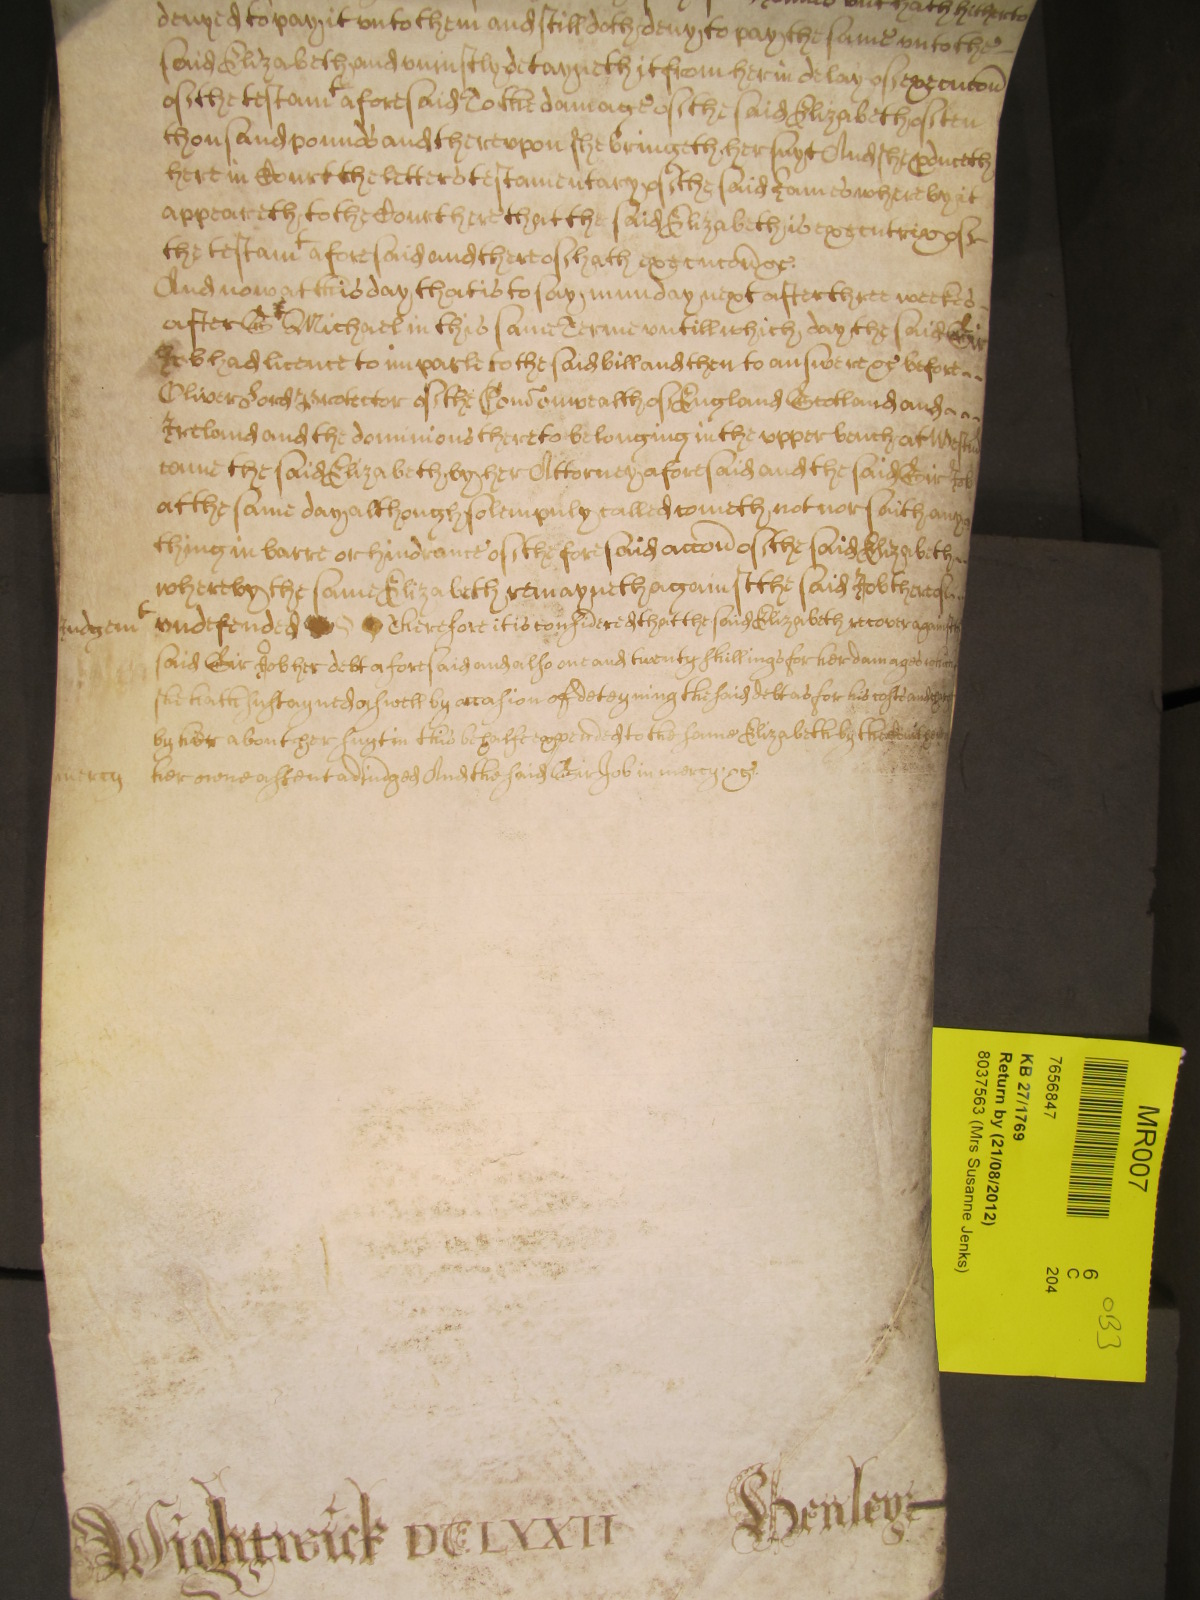 but hath hitherto
denyed to pay it unto them and still doth deny to pay the same unto the
said Elizabeth and uniustly detayneth it from her in delay of execucon
of the testamt aforesaid To the damage of the said Elizabeth of ten
thousand pounds and thereupon she bringeth her suyt And she pduceth
here in Court the letters testamentary of the said James whereby it
appeareth to the Court here that the said Elizabeth is executrix of
the testamt aforesaid and thereof hath execucon &c.
And now at this day that is to say munday next after three weekes
after St Michael in this same Terme untill which day the said Sir
Job had licence to imparle to the said bill and then to answere &c before
Oliver Lord Protector of the Comonwealth of England Scotland and
Ireland and the dominions thereto belonging in the upper bench at Westm
came the said Elizabeth by her Attorney aforesaid and the said Sir Job
at the same day although solempnly called cometh not nor saith any
thing in barre or hindrance of the foresaid accon of the said Elizabeth
whereby the same Elizabeth remayneth against the said Job thereof
Judgemt undefended Therefore it is considered that the said Elizabeth recover against
said Sir Job her debt aforesaid and also one and twenty shillings for her damages which
she hath sustayned aswell by occasion of deteyning the said debt as for his costs and
by her about her suyt in this behalfe expended to the same Elizabeth by the
mercy her owne assent adiudged And the said Sir Job in mercy &c.
Wightwick DCLXXII Henley
MR007
7656847
KB 27/1769
Return by (21/08/2012)
8037563 (Mrs Susanne Jenks)
6
C
204
0B3